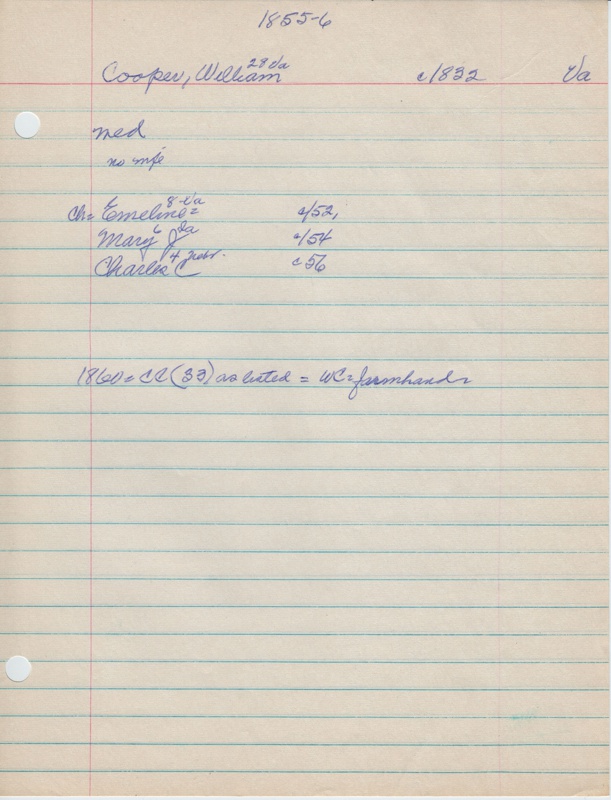 1855-6
Cooper, William 28 Va c/1832 Va
med
no wife
ch= Emeline 8 Va = c/52,
Mary J 6 Ia c/54
Charles C 4 Nebr. c 56
1860 = CC (33) as listed = WC = farmhand